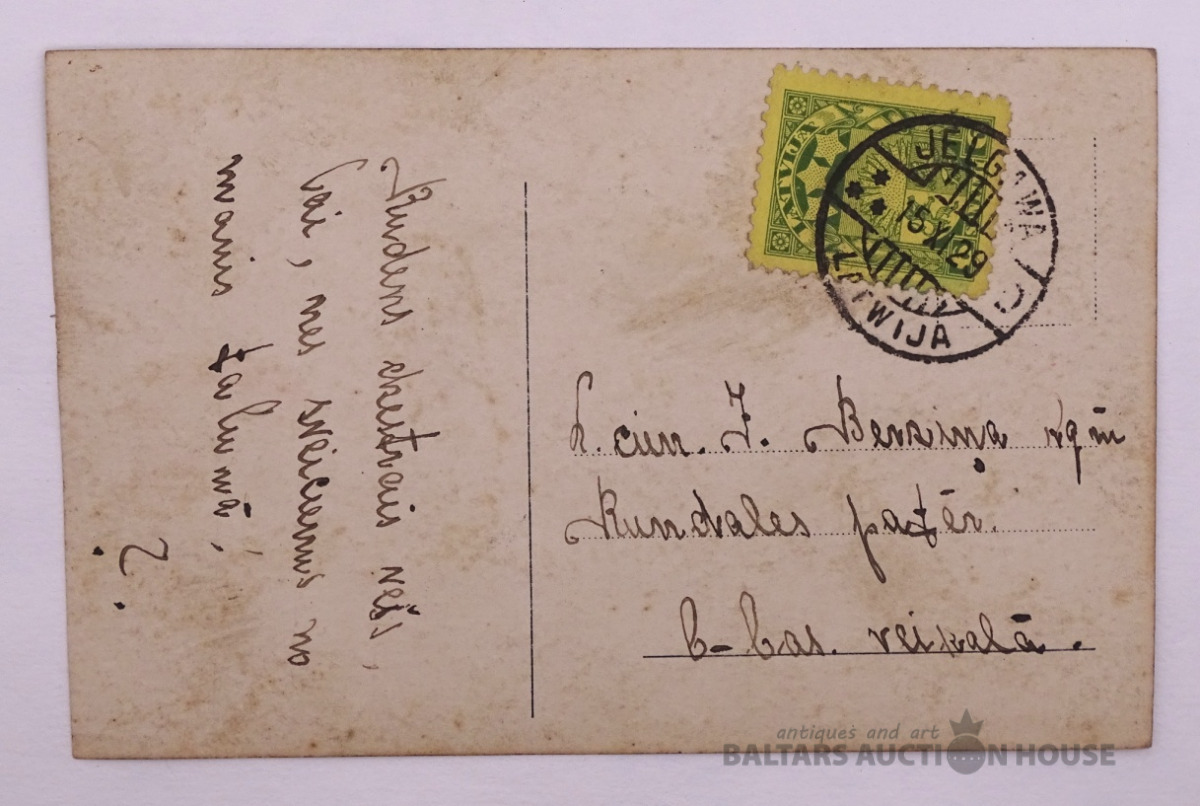 Rudens skarbais vējš,
Vai, nes sveicienus no
manis
LATVIJA
JELGAWA
15 XI 29
LATWIJA
L. cien. J. Bersiņa kgm
Rundales patēr.
b-bas. veikalā.
antiques and art
BALTARS AUCTION HOUSE